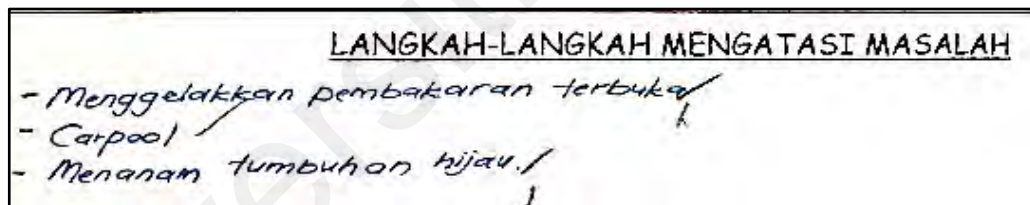 LANGKAH-LANGKAH MENGATASI MASALAH
- Menggelakkan pembakaran terbuka
- Carpool
- Menanam tumbuhan hijau.